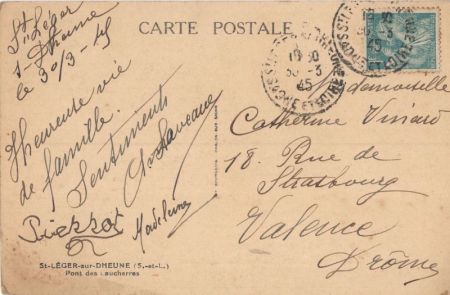 CARTE POSTALE
St Léger
s. Dheune
le 30/3-45
l'heureuse vie
de famille.
Sentiments
Pierrot
Madeleine
ST-LÉGER-sur-DHEUNE (S.-et-L.)
Pont des Laucherres
10 30
30-3
45
SAONE ET LOIRE
Mademoiselle
Catherine Viviard
18. Rue de
Strasbourg
Valence
Drôme